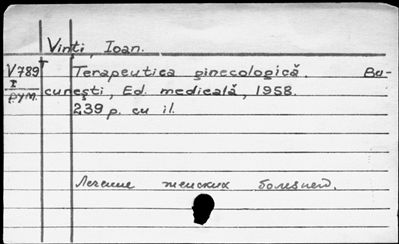 Vinti, Ioan.
V789 Terapeutica ginecologică. Bu-
I
рум. cureşti, Ed. medicală, 1958.
239 p. cu il.
Лечение женских болезней.